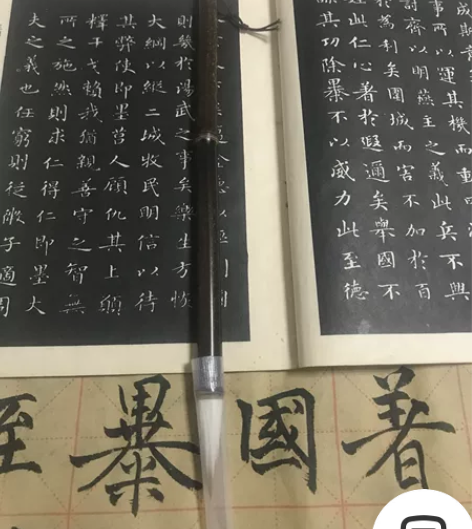 成斯
事所以運其機而
討齊以明燕主之義此兵不興
於為利矣圍城而害不加於百
此仁心著於遐邇矣舉國不
其功除暴不以威力此至德
則幾於湯武之事矣樂生方恢
大綱以縱二城牧民明信以待
其弊使即墨莒人顧仇其上願
釋干戈賴我猶親善守之智無
所之施然則求仁得仁即墨大
夫之義也任窮則從微子適周
著國暴至